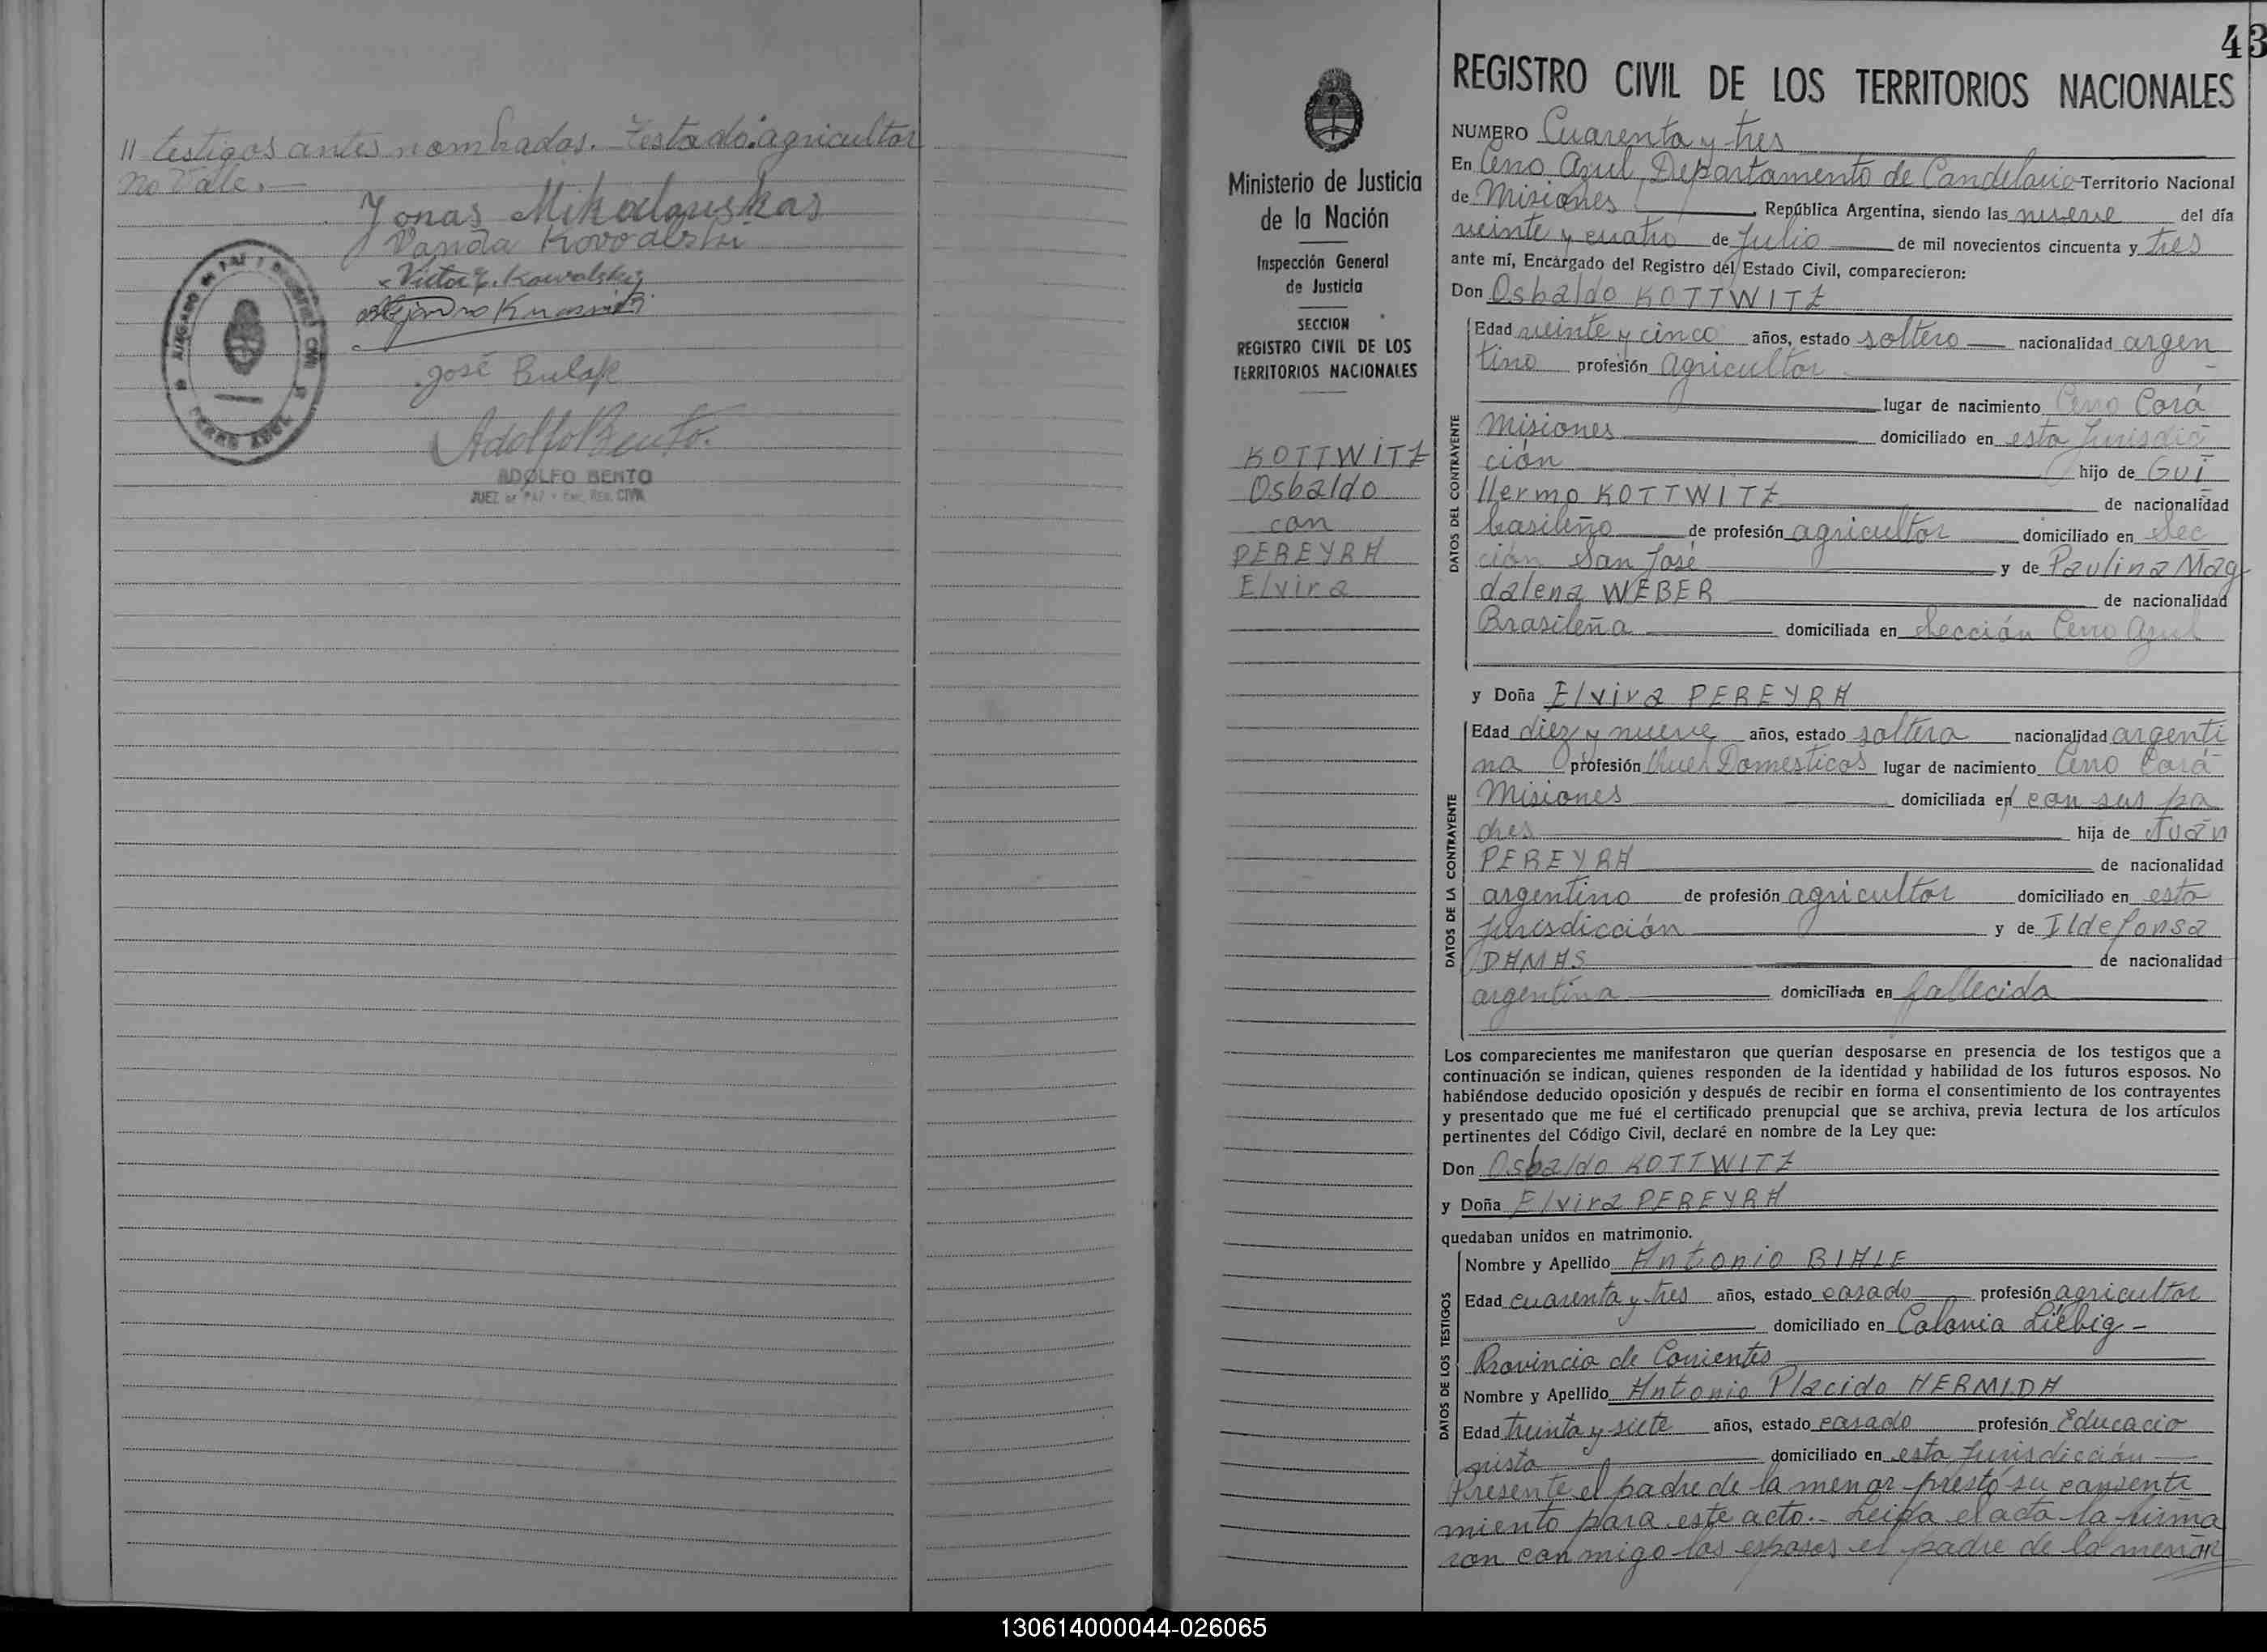 // testigos antes nombrados. Testado: agricultor
no vale.
Jonas Mikolauskas
Vanda Kovoalski
Victor J. Kowalsky
Alejandro
José
Adolfo Bento.
ADOLFO BENTO
JUEZ DE PAZ Y ENC. REG. CIVIL
JUZGADO DE PAZ Y REGISTRO CIVIL
CERRO AZUL
43
REGISTRO CIVIL DE LOS TERRITORIOS NACIONALES
Ministerio de Justicia
de la Nación
Inspección General
de Justicia
SECCION
REGISTRO CIVIL DE LOS
TERRITORIOS NACIONALES
KOTTWITZ
Osbaldo
con
PEREYRA
Elvira
NUMERO Cuarenta y tres
En Cerro Azul, Departamento de Candelaria Territorio Nacional
de Misiones, República Argentina, siendo las nueve del día
veinte y cuatro de Julio de mil novecientos cincuenta y tres
ante mí, Encargado del Registro del Estado Civil, comparecieron:
Don Osbaldo KOTTWITZ
DATOS DEL CONTRAYENTE
Edad veinte y cinco años, estado soltero nacionalidad argen
tino profesión agricultor
lugar de nacimiento Cerro Corá
Misiones domiciliado en esta Jurisdic
ción hijo de Gui
llermo KOTTWITZ de nacionalidad
basileño de profesión agricultor domiciliado en Sec
ción San José y de Paulina Mag
dalena WEBER de nacionalidad
Brasileña domiciliada en Sección Cerro Azul
y Doña Elvira PEREYRA
DATOS DE LA CONTRAYENTE
Edad diez y nueve años, estado soltera nacionalidad argenti
na profesión Quer Domesticos lugar de nacimiento Cerro Corá
Misiones domiciliada en con sus pa
dres hija de Juan
PEREYRA de nacionalidad
argentino de profesión agricultor domiciliado en esta
Jurisdicción y de Ildefonsa
DAMAS de nacionalidad
argentina domiciliada en fallecida
Los comparecientes me manifestaron que querían desposarse en presencia de los testigos que a
continuación se indican, quienes responden de la identidad y habilidad de los futuros esposos. No
habiéndose deducido oposición y después de recibir en forma el consentimiento de los contrayentes
y presentado que me fué el certificado prenupcial que se archiva, previa lectura de los artículos
pertinentes del Código Civil, declaré en nombre de la Ley que:
Don Osbaldo KOTTWITZ
y Doña Elvira PEREYRA
quedaban unidos en matrimonio.
DATOS DE LOS TESTIGOS
Nombre y Apellido Antonio BIALE
Edad cuarenta y tres años, estado casado profesión agricultor
domiciliado en Colonia Liebig -
Provincia de Corrientes
Nombre y Apellido Antonio Placido HERMIDA
Edad treinta y siete años, estado casado profesión Educacio
nista domiciliado en esta Jurisdicción
Presente el padre de la menor prestó su consenti
miento para este acto.- Leida el acta la firma
ron conmigo los esposos el padre de la menor
130614000044-026065